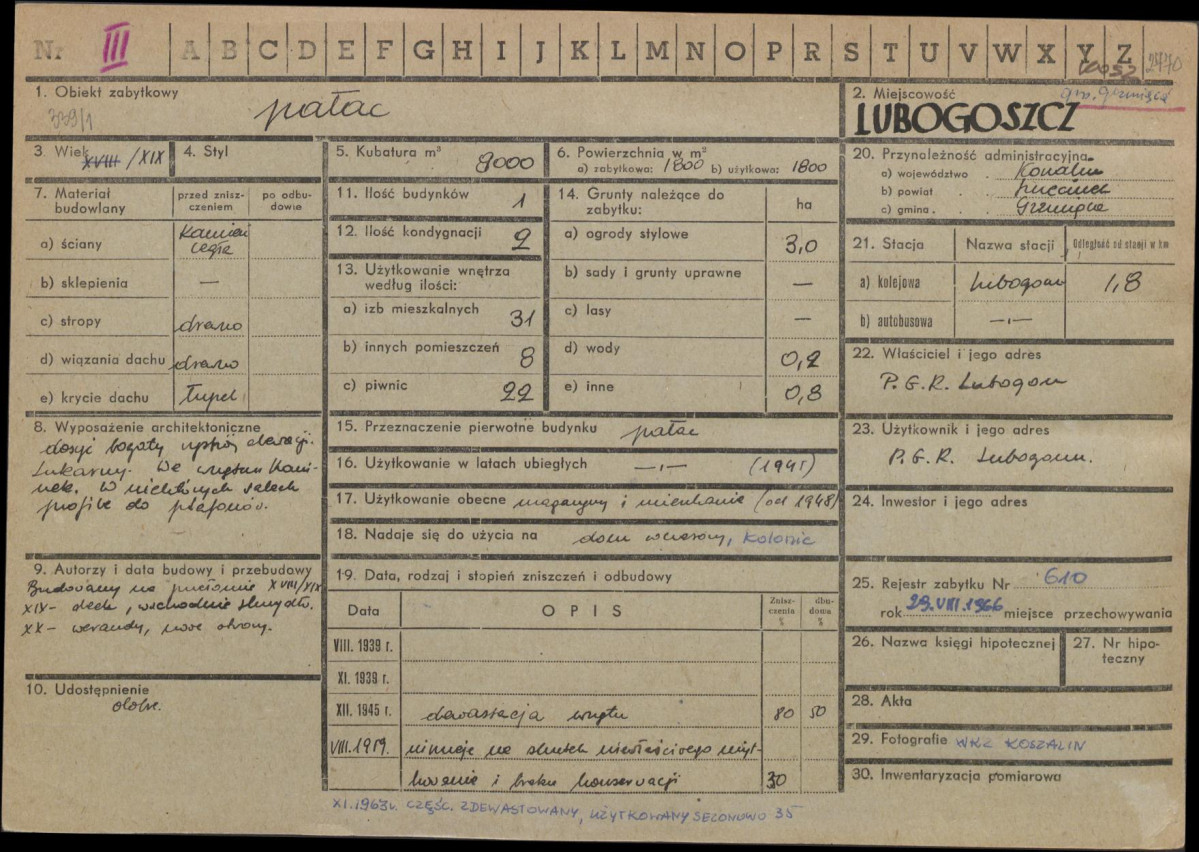 Nr III A B C D E F G H I J K L M N O P R S T U V W X Y Z 2770
1. Obiekt zabytkowy
339/1
pałac
2. Miejscowość
LUBOGOSZCZ
3. Wiek XVIII/XIX
4. Styl
5. Kubatura m³ 9000
6. Powierzchnia w m²
a) zabytkowa: 1800 b) użytkowa: 1800
20. Przynależność administracyjna
a) województwo . Koszalin
b) powiat . . Szczecinek
c) gmina . . Grzmiąca
7. Materiał budowlany
przed zniszczeniem
po odbudowie
a) ściany kamień cegła
b) sklepienia —
c) stropy drewno
d) wiązania dachu drewno
e) krycie dachu łupek
11. Ilość budynków 1
12. Ilość kondygnacji 2
13. Użytkowanie wnętrza
według ilości:
a) izb mieszkalnych 31
b) innych pomieszczeń 8
c) piwnic 22
14. Grunty należące do
zabytku: ha
a) ogrody stylowe 3,0
b) sady i grunty uprawne —
c) lasy —
d) wody 0,2
e) inne 0,8
21. Stacja Nazwa stacji Odległość od stacji w km
a) kolejowa Lubogoszcz 1,8
b) autobusowa —„—
22. Właściciel i jego adres
P.G.R. Lubogoszcz
8. Wyposażenie architektoniczne
dosyć bogaty wystrój elewacji.
Lukarny. We wnętrzu komi-
nek. W niektórych salach
profile do plafonów.
15. Przeznaczenie pierwotne budynku pałac
16. Użytkowanie w latach ubiegłych —„— (1945)
17. Użytkowanie obecne magazyny i mieszkanie (od 1948)
18. Nadaje się do użycia na dom wczasowy, kolonie
23. Użytkownik i jego adres
P.G.R. Lubogoszcz.
24. Inwestor i jego adres
9. Autorzy i data budowy i przebudowy
Budowany na przełomie XVIII/XIX
XIX – dach, wschodnie skrzydło.
XX – werandy, nowe okna.
19. Data, rodzaj i stopień zniszczeń i odbudowy
Data OPIS Zniszczenia % dbudowa %
VIII. 1939 r.
XI. 1939 r.
XII. 1945 r. dewastacja wnętrz 80 50
VIII. 1959. niszczeje na skutek niewłaściwego użyt-
kowania i braku konserwacji 30
XI.1963r. CZĘŚC. ZDEWASTOWANY, UŻYTKOWANY SEZONOWO 35
10. Udostępnienie
dobre.
25. Rejestr zabytku Nr 610
rok 29.VIII.1966 miejsce przechowywania
26. Nazwa księgi hipotecznej
27. Nr hipoteczny
28. Akta
29. Fotografie WKZ KOSZALIN
30. Inwentaryzacja pomiarowa